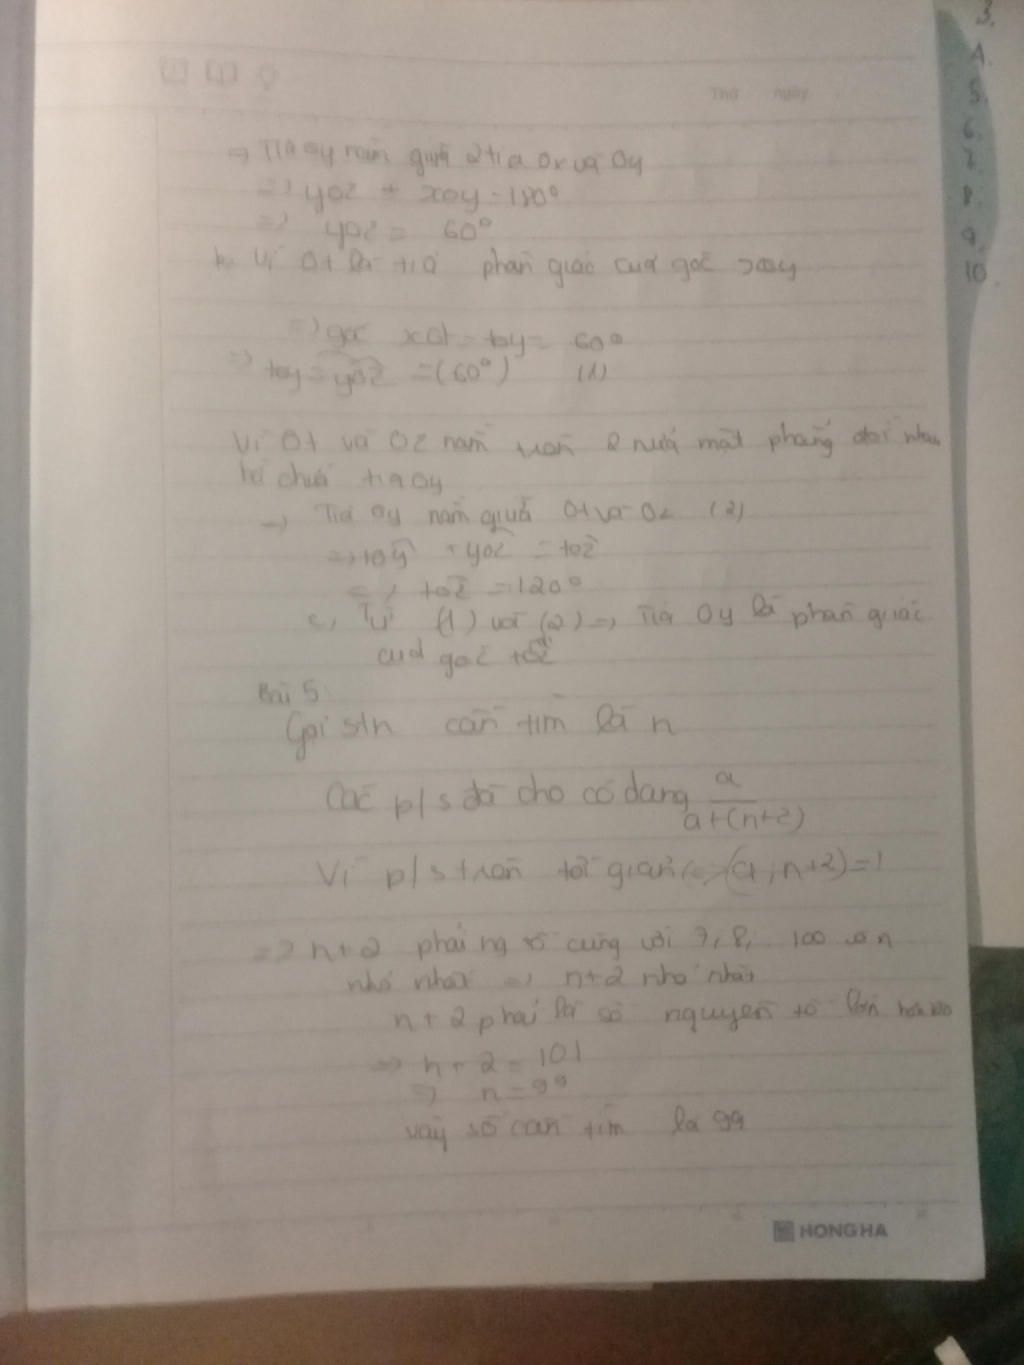 Thứ ngày
3.
4.
5.
6.
7.
8.
9.
10.
=> Tia Oy nằm giữa 2 tia Ox và Oy
=> yoz + xoy = 180°
=> yoz = 60°
b, Vì Ot là tia phân giác của góc xoy
=> góc xot = toy = 60°
=> toy = yoz = (60°) (1)
Vì Ot và Oz nằm trên 2 nửa mặt phẳng đối nhau
bờ chứa tia Oy
=> Tia Oy nằm giữa Ot và Oz (2)
=> toy + yoz = toz
=> toz = 120°
c, Từ (1) với (2) => Tia Oy là phân giác
của góc toz
Bài 5:
Gọi stn cần tìm là n
Các p/s đã cho có dạng a/a+(n+2)
Vì p/s trên tối giản <=> (a; n+2) = 1
=> n+2 phải ng tố cùng với 7, 8, 100 và n
nhỏ nhất => n+2 nhỏ nhất
n+2 phải là số nguyên tố lớn hơn 100
=> n+2 = 101
=> n = 99
Vậy số cần tìm là 99
HONG HA